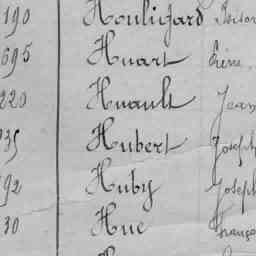 190 Houligard
695 Huart Irène
220 Huault Jean
35 Hubert Joseph
92 Huby Joseph
30 Hue França